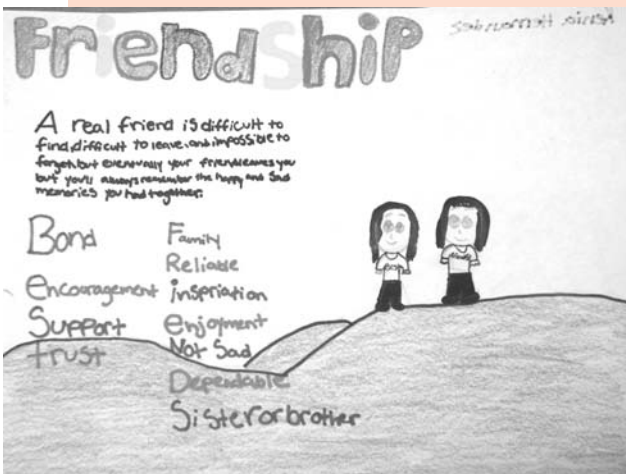 Friendship
Hernandez
A real friend is difficult to
find,difficult to leave,and impossible to
forget,but eventually your friend leaves you
but you'll always remember the happy and sad
memories you had together.
Bond
encouragement
Support
trust
Family
Reliable
inspriation
enjoyment
Not Sad
Dependable
Sister or brother